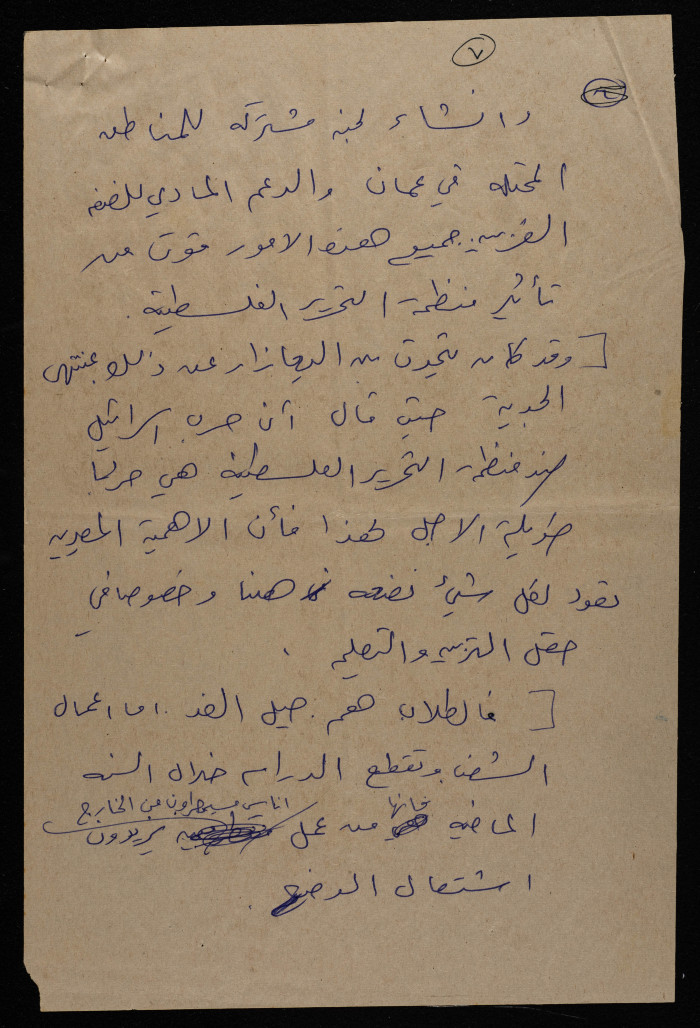 ٧
وانشاء لجنه مشتركه للمناطق
المحتله في عمان والدعم المادي للضفه
الغربيه. جميع هذه الامور قوت من
تأثير منظمة التحرير الفلسطينية.
[ وقد كان يتحدث بن اليعازار عن ذلك بمنتهى
الجدية حتى قال أن حرب اسرائيل
ضد منظمة التحرير الفلسطينية هي حربا
طويلة الاجل لهذا فأن الاهمية
تعود لكل شيئ نضعه هنا وخصوصا في
حقل التربيه والتعليم.
[ فالطلاب هم جيل الغد. اما اعمال
الشغب وتقطع الدراسه خلال السنه
الماضيه فانها من عمل اناس من الخارج يريدون
اشتعال الوضع.